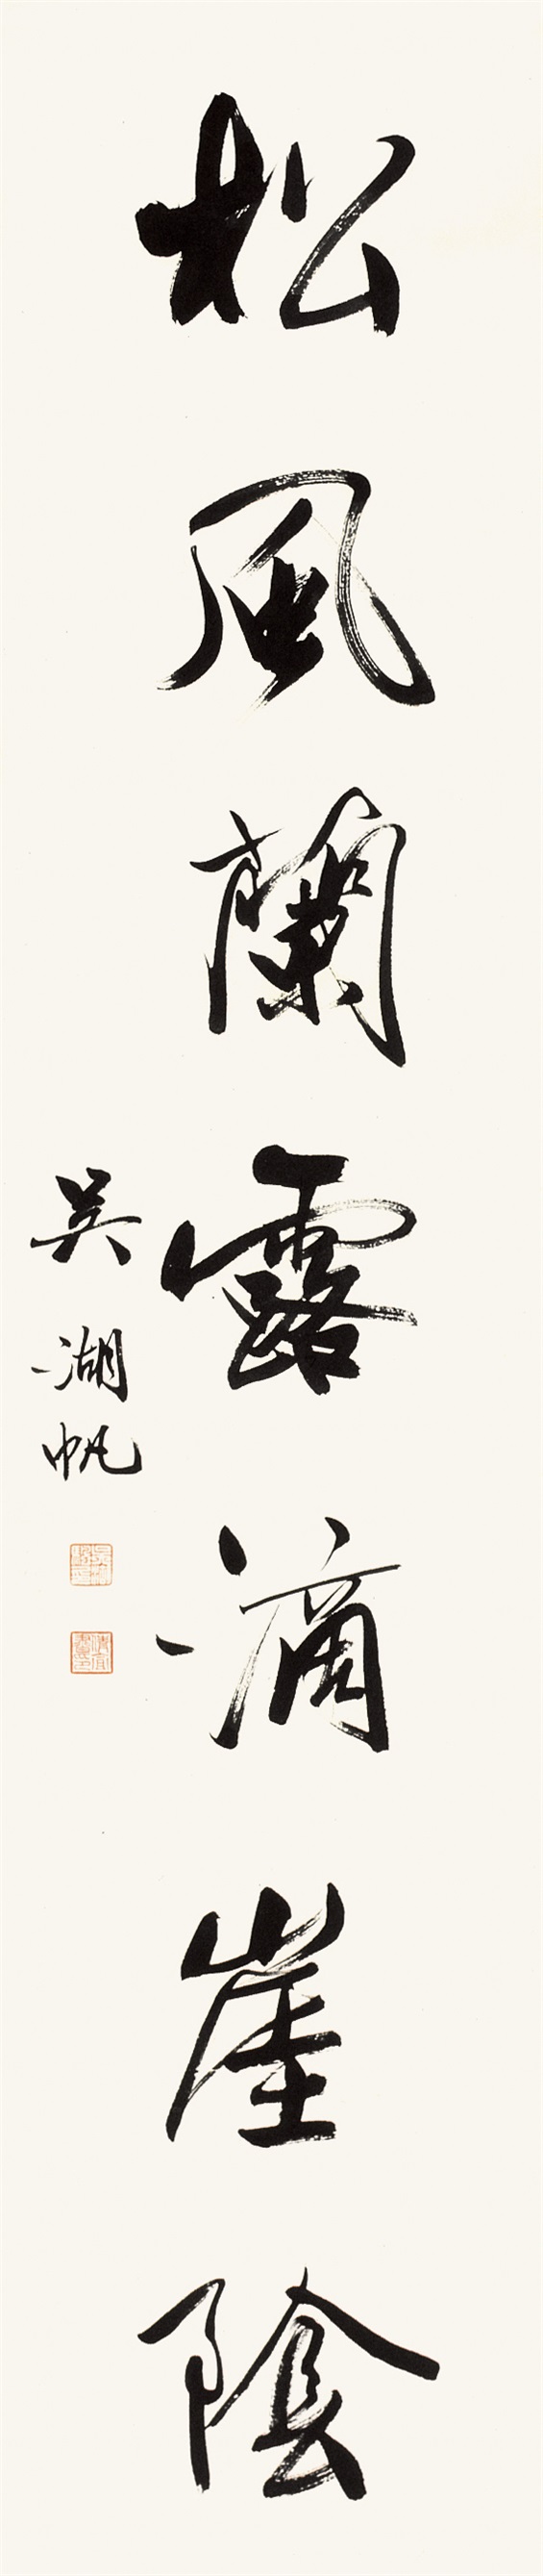 松風蘭露滴崖陰
吳湖帆